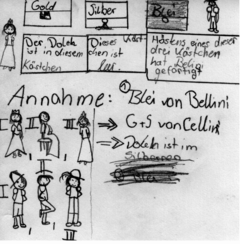 Gold
Silber
Blei
Der Dolch
ist in diesem
Kästchen
Dieses Käst-
chen ist
leer.
Höstens eines dieser
drei Kästchen
hat Bellini
gefertigt
Annahme:
① Blei von Bellini
I
II
III
⇒ G+S von Cellini
⇒ Dolch ist im
Silbernen
I
II
III